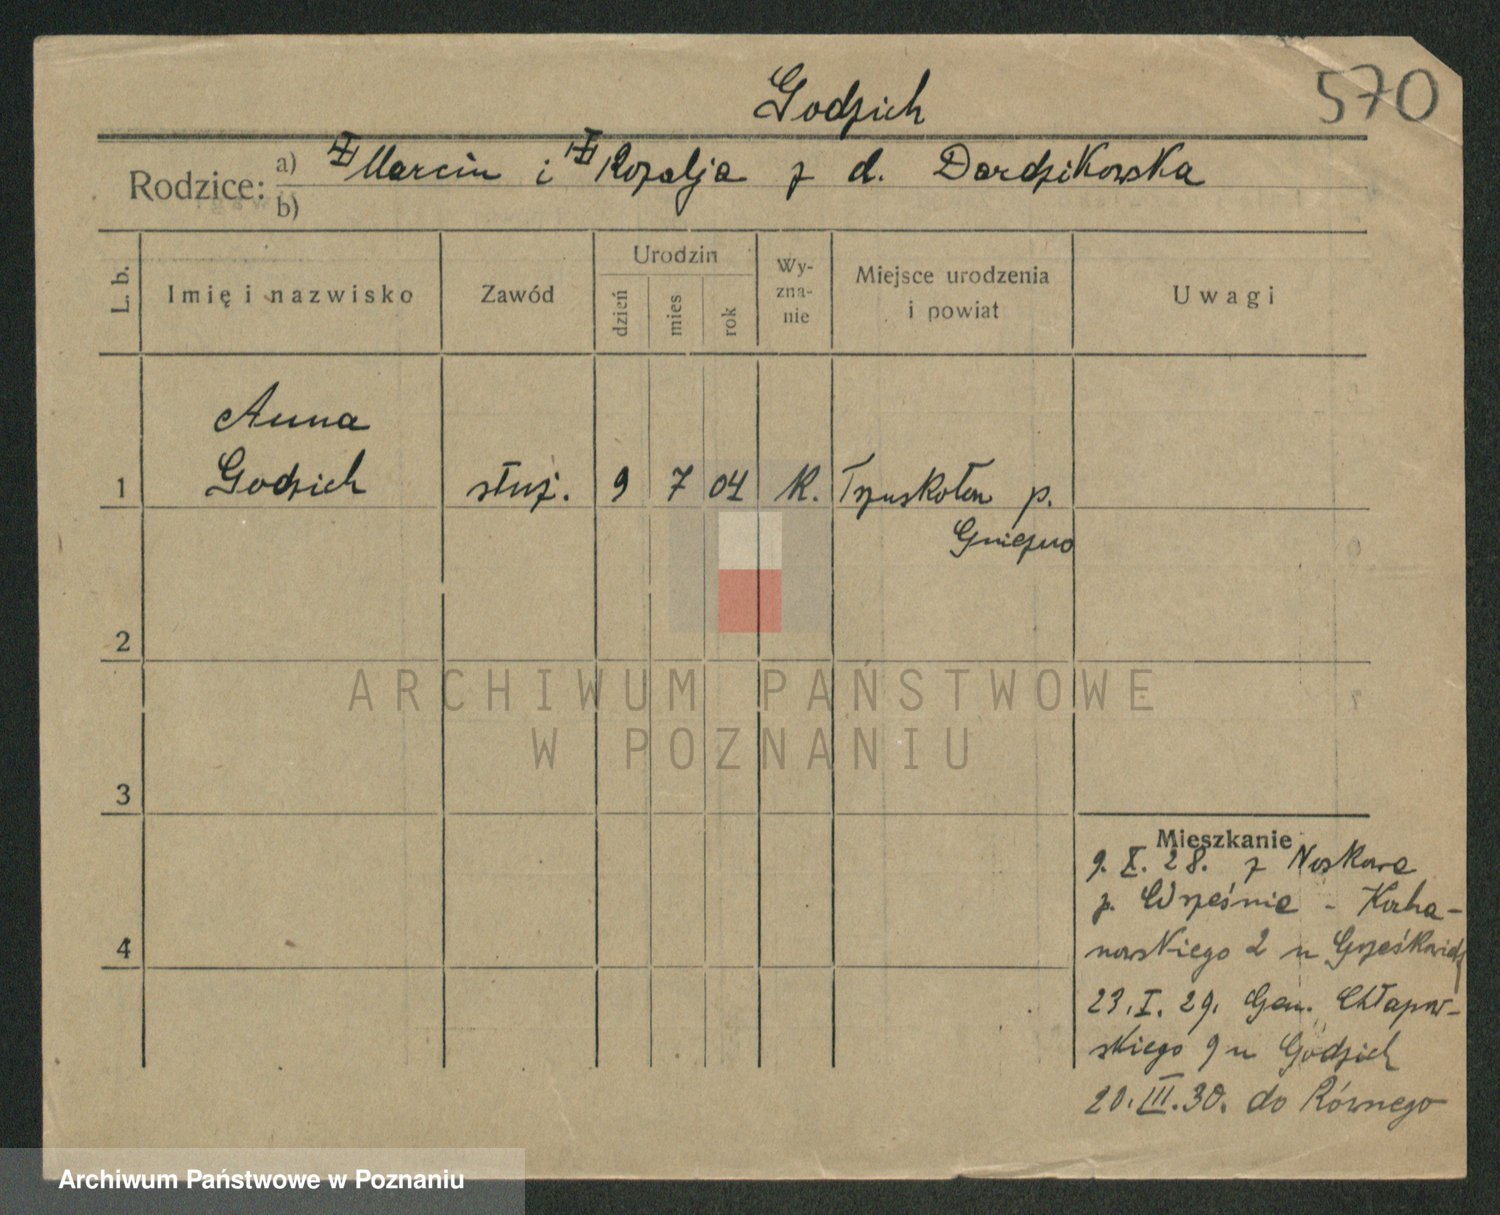 Godzich
570
Rodzice: a) Marcin i Rozalja z d. Dardzikowska
b)
L. b. Imię i nazwisko Zawód Urodzin dzień mies rok Wy-zna-nie Miejsce urodzenia i powiat Uwagi
Anna
1 Godzich służ. 9 7 04 K. Trzuskołoń p.
Gniezno
2
3
Mieszkanie
9. X. 28. z Noskowa
p. Września - Kocha-
4 nowskiego 2 u
23. I. 29. Gen. Chłapow-
skiego 9 u Godzich
20. III. 30. do Równego
ARCHIWUM PAŃSTWOWE
W POZNANIU
Archiwum Państwowe w Poznaniu